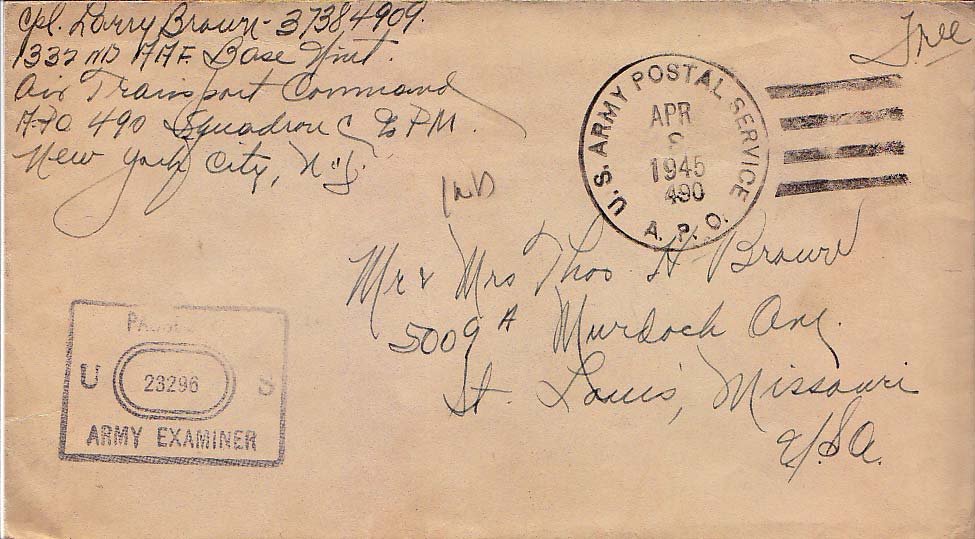 Cpl. Larry Brown - 37384909.
1332 ND AAF Base Unit.
Air Transport Command
APO 490 Squadron C % PM.
New York City, N.Y.
Free
U.S. ARMY POSTAL SERVICE
APR
1945
490
A. P. O.
Mr & Mrs Thos H Brown
5009 A Murdoch Ave.
St. Louis, Missouri
U.S.A.
U 23296 S
ARMY EXAMINER